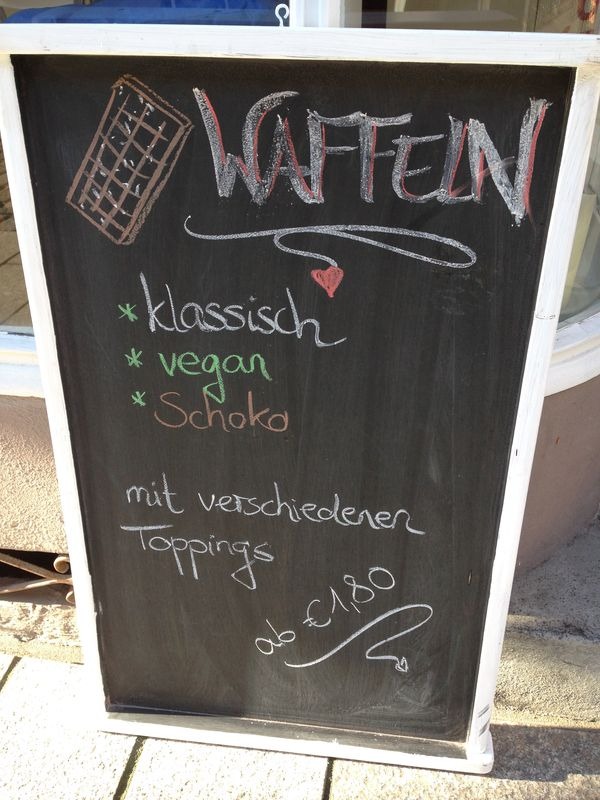 WAFFELN
* klassisch
* vegan
* Schoko
mit verschiedenen
Toppings
ab €1,80